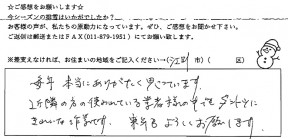 ☆ご感想をお願いします☆
今シーズンの排雪はいかがでしたか？
お客様の声が、私たちの原動力になっています。ぜひ、ご感想をお聞かせ下さい。
ご返信は郵送またはFAX(011-879-1951)にてお願い致します。
※差支えなければ、お住まいの地域をご記入ください→(江別 市)( 区)
毎年 本当にありがたく思っています。
近隣の方の使われている業者様の中でもダントツに
きれいな作業です。 来年もよろしくお願いします。